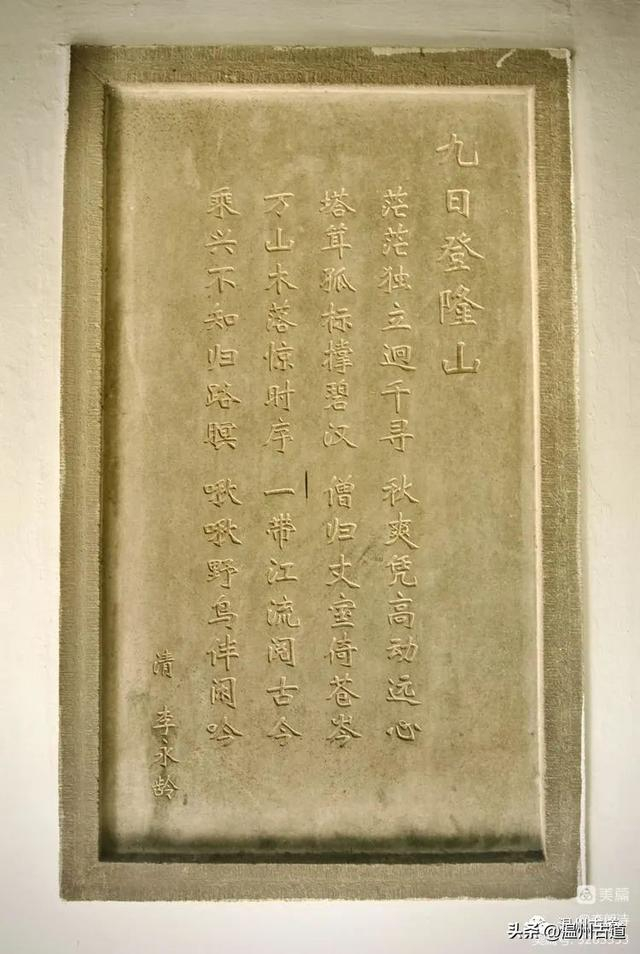 九日登隆山
茫茫独立迥千寻 秋爽凭高动远心
塔茸孤标撑碧汉 僧归丈室倚苍岑
万山木落惊时序 一带江流阅古今
乘兴不知归路暝 啾啾野鸟伴闲吟
清 李永龄
美篇
头条 @温州古道